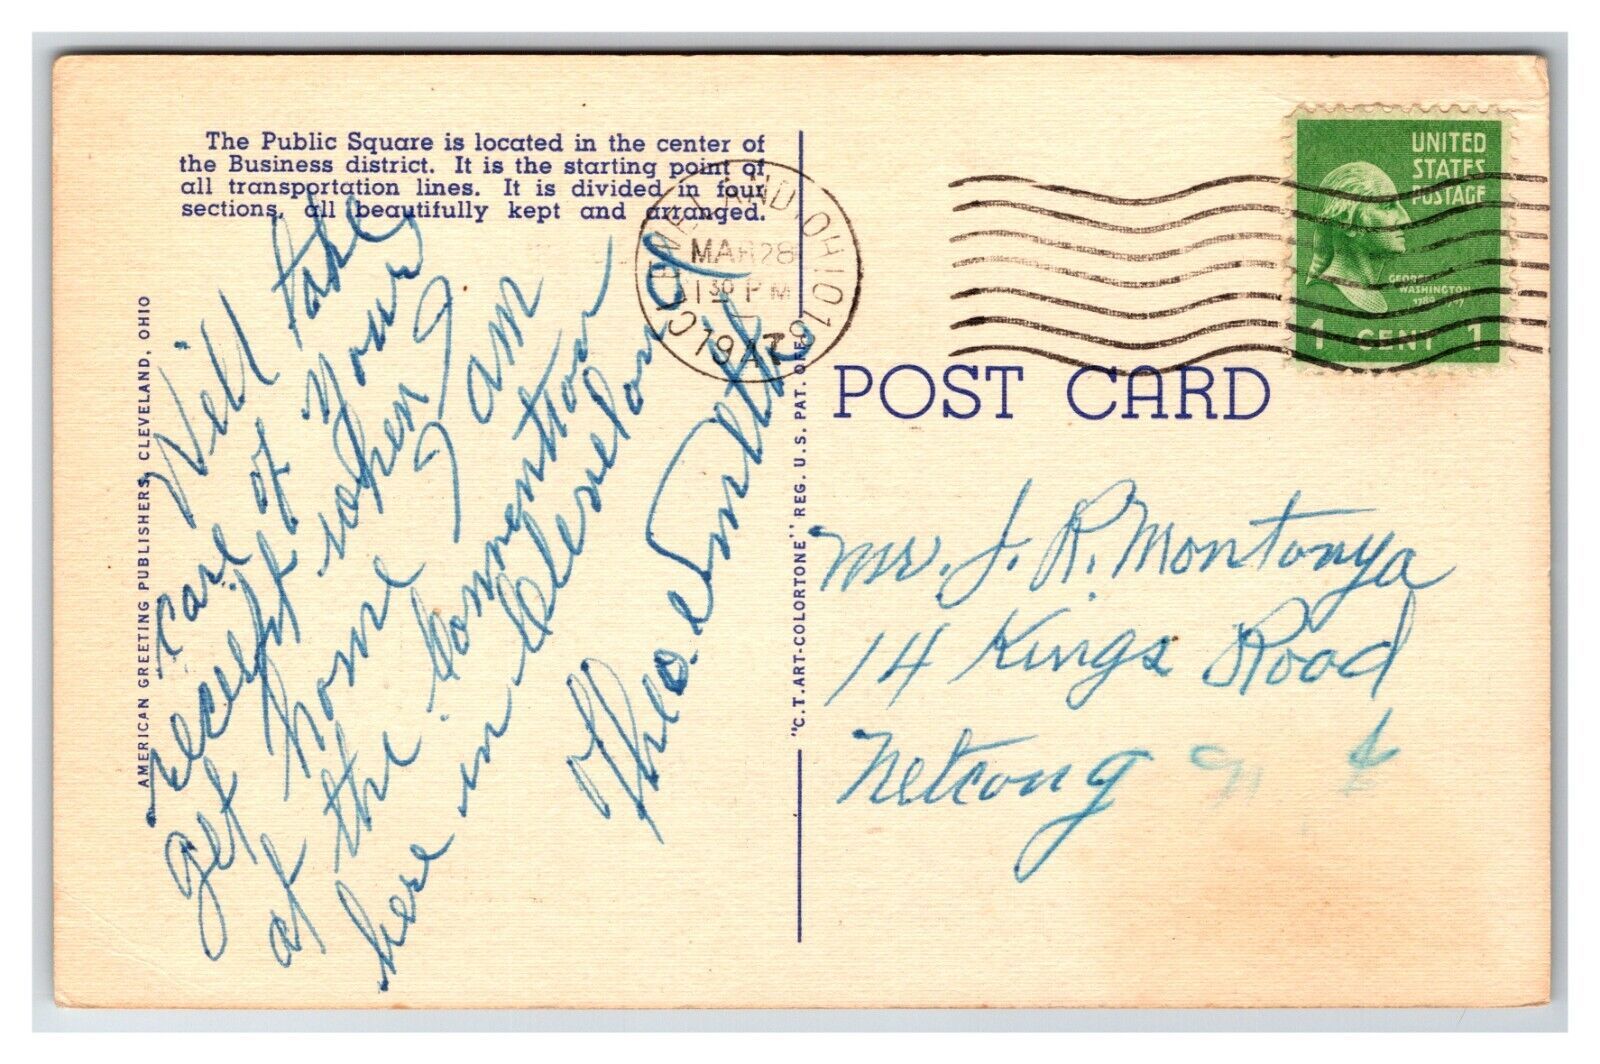 The Public Square is located in the center of
the Business district. It is the starting point of
all transportation lines. It is divided in four
sections, all beautifully kept and arranged.
Will take
care of your
receipt when I
get home I am
at the convention
here in Cleveland
Theo. Smith
AMERICAN GREETING PUBLISHERS, CLEVELAND, OHIO
"C.T. ART-COLORTONE" REG. U.S. PAT. OFF.
CLEVELAND, OHIO
MAR 28
1 30 PM
1947
UNITED
STATES
POSTAGE
GEORGE
WASHINGTON
1789-1797
1 CENT 1
POST CARD
Mr. J. R. Montonya
14 Kings Road
Netcong N J